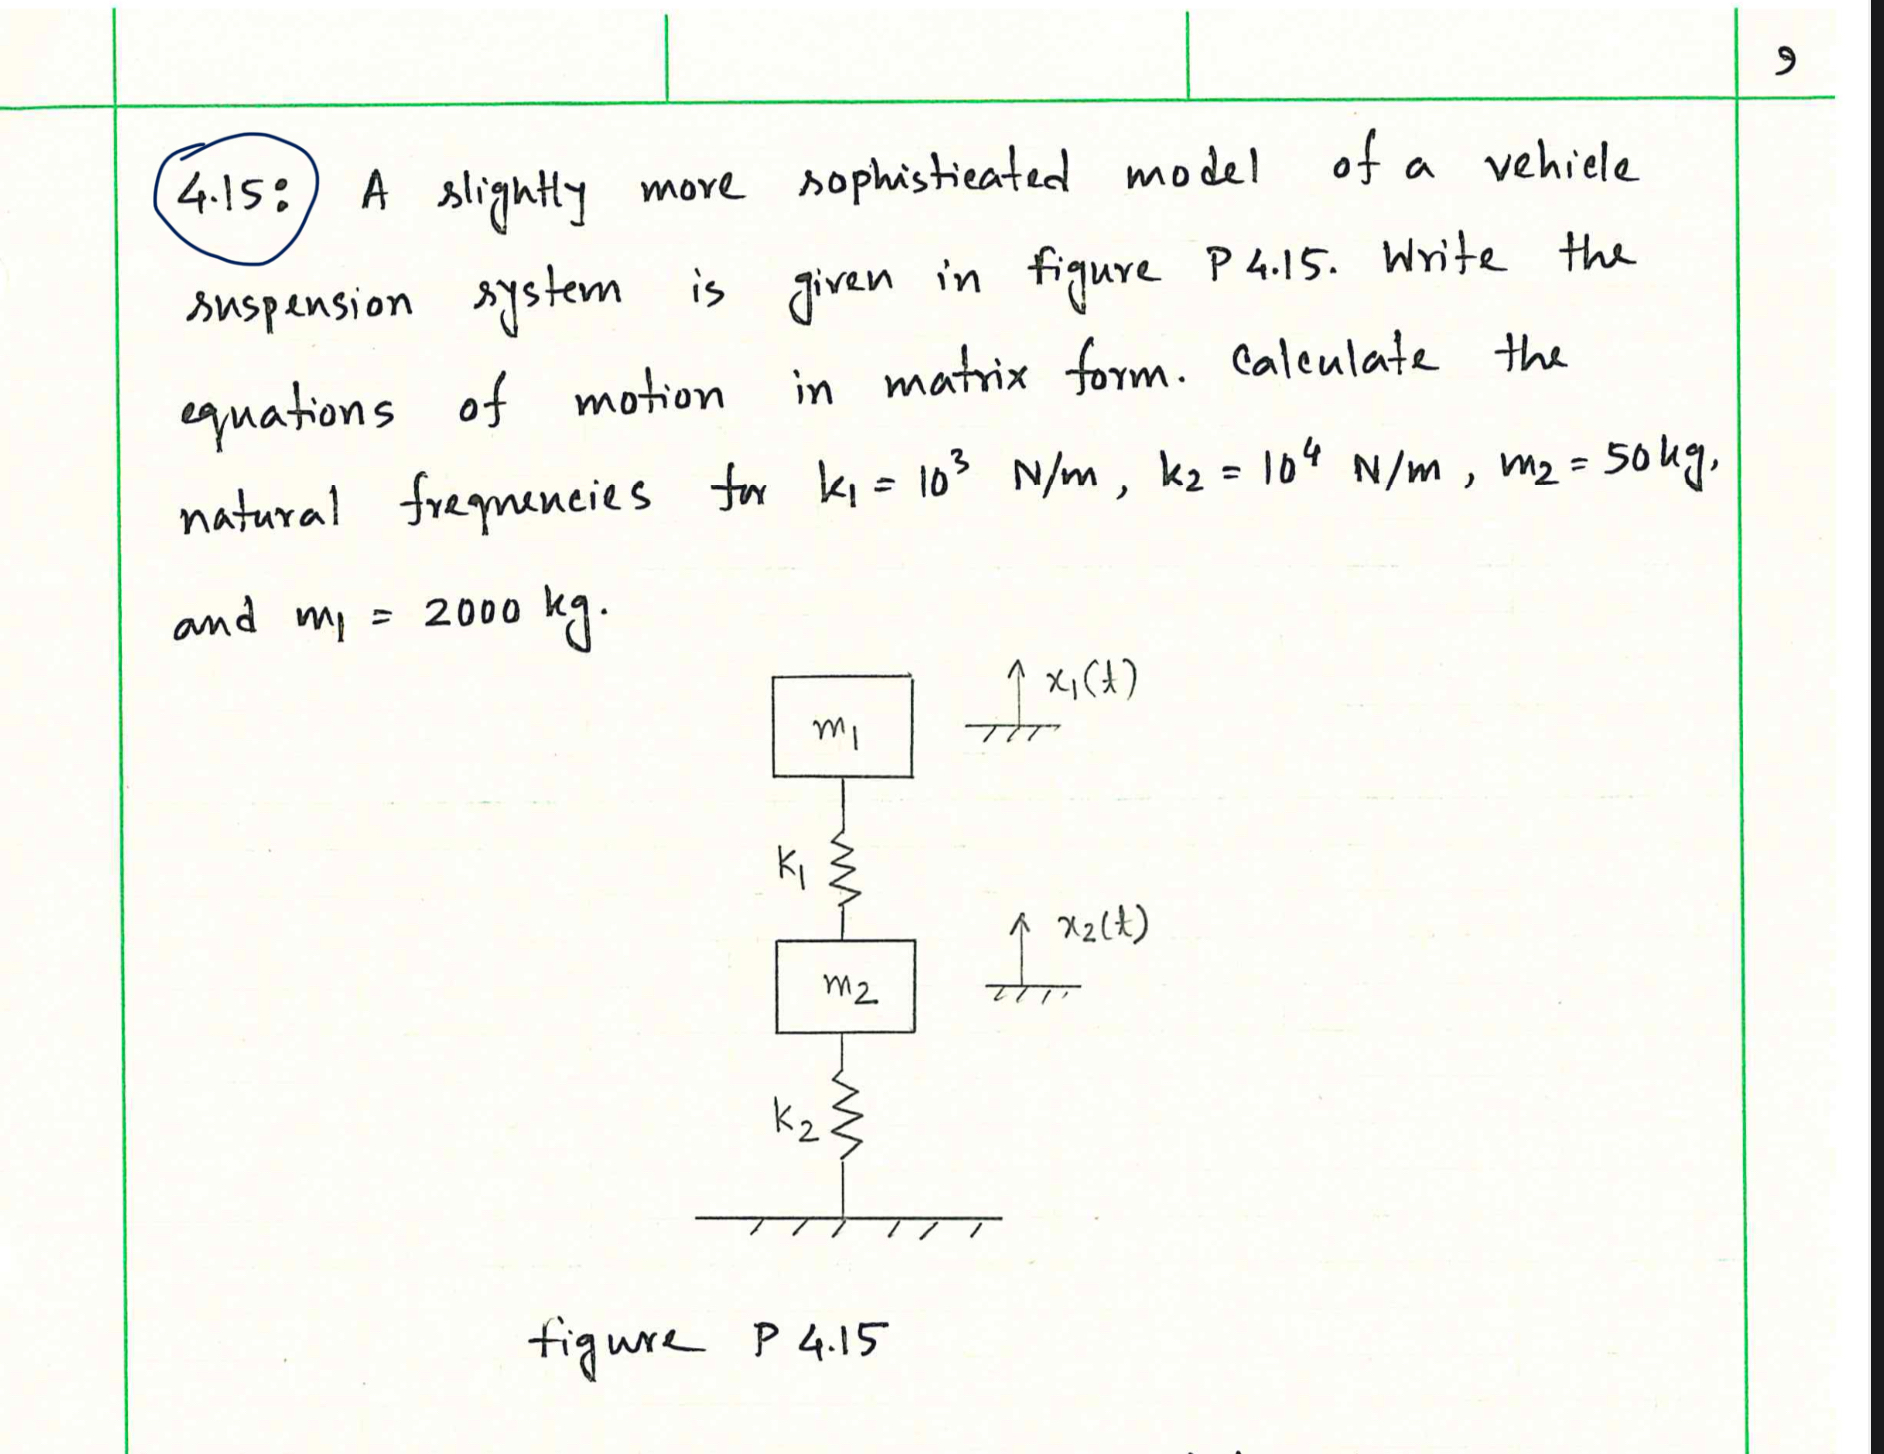 9
4.15: A slightly more sophisticated model of a vehicle
suspension system is given in figure P 4.15. Write the
equations of motion in matrix form. Calculate the
natural frequencies for k₁ = 10³ N/m, k₂ = 10⁴ N/m, m₂ = 50 kg,
and m₁ = 2000 kg.
x₁(t)
m₁
k₁
x₂(t)
m₂
k₂
figure P 4.15